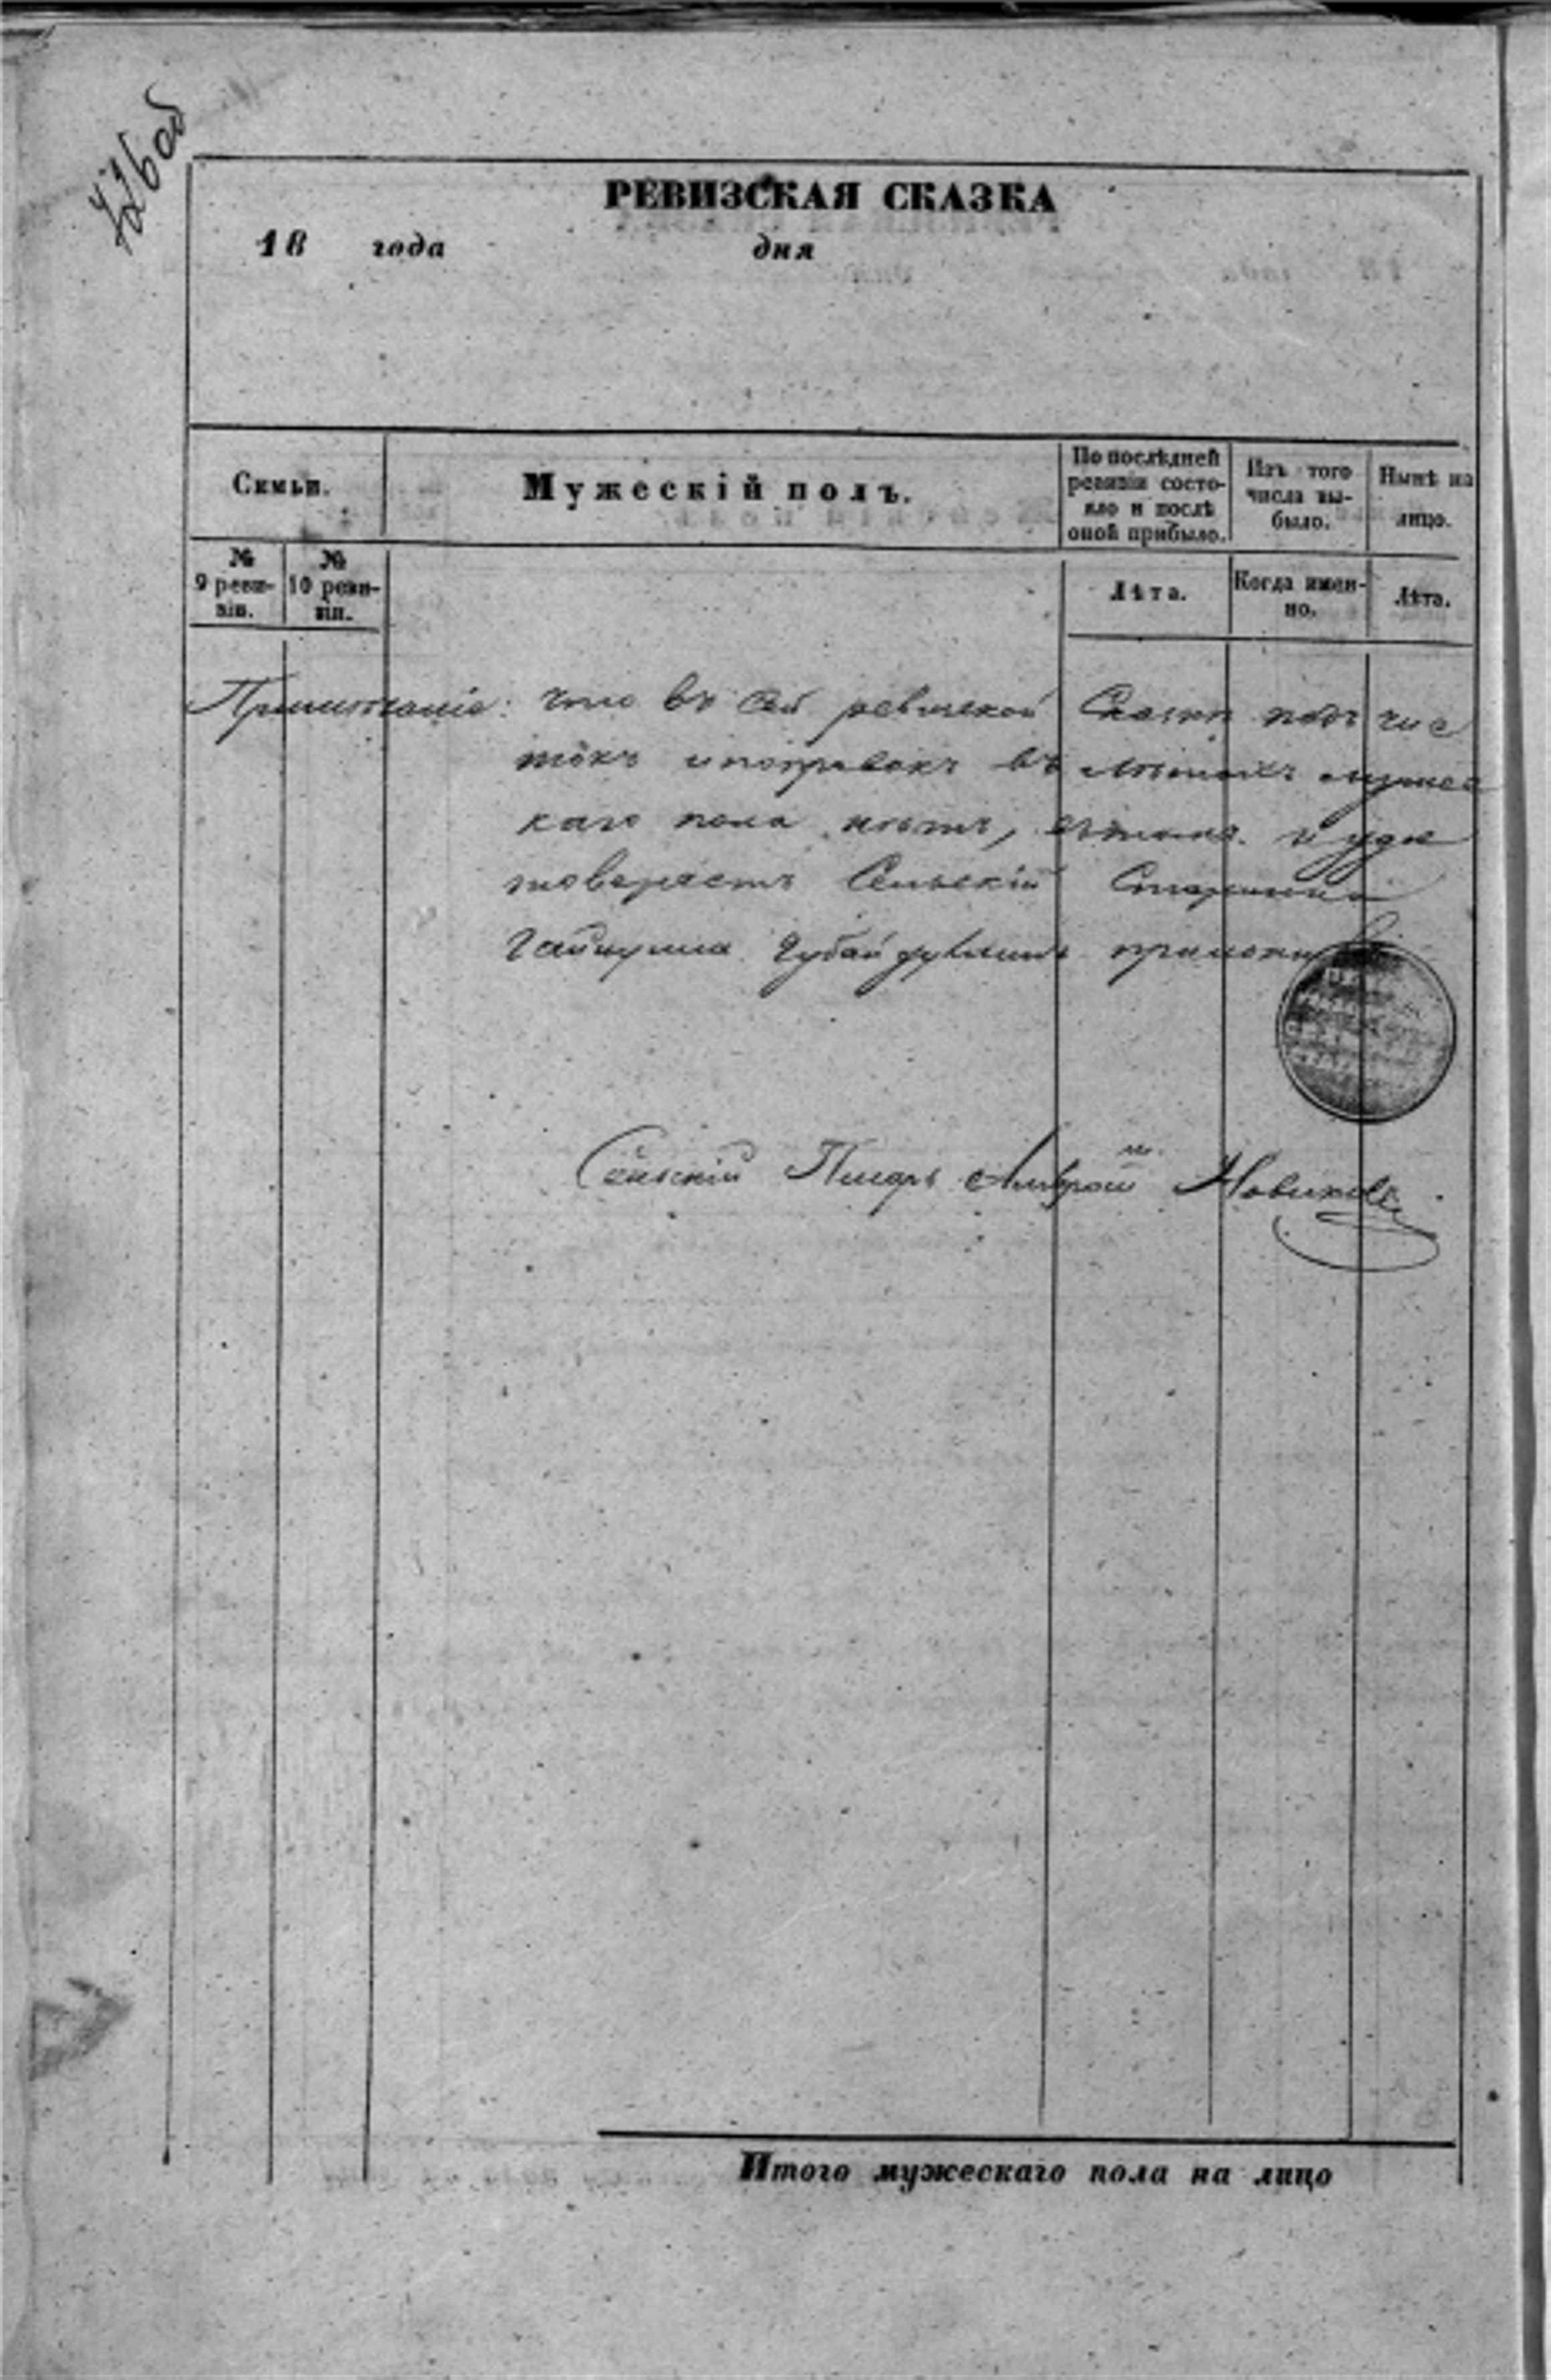 426об
РЕВИЗСКАЯ СКАЗКА
18 года дня
Семьи.
Мужескій полъ.
По послѣдней
ревизіи состо-
яло и послѣ
оной прибыло.
Изъ того
числа вы-
было.
Нынѣ на
лицо.
№
9 реви-
зіи.
№
10 реви-
зіи.
Лѣта.
Когда имен-
но.
Лѣта.
Примѣчаніе: что въ сей ревизской Сказкѣ подчис
токъ и поправокъ въ лѣтахъ мужес
каго пола нѣтъ, въ томъ и удо
стоверяетъ Сельскій Старшина
Сельскій Писарь Новиковъ
Итого мужескаго пола на лицо